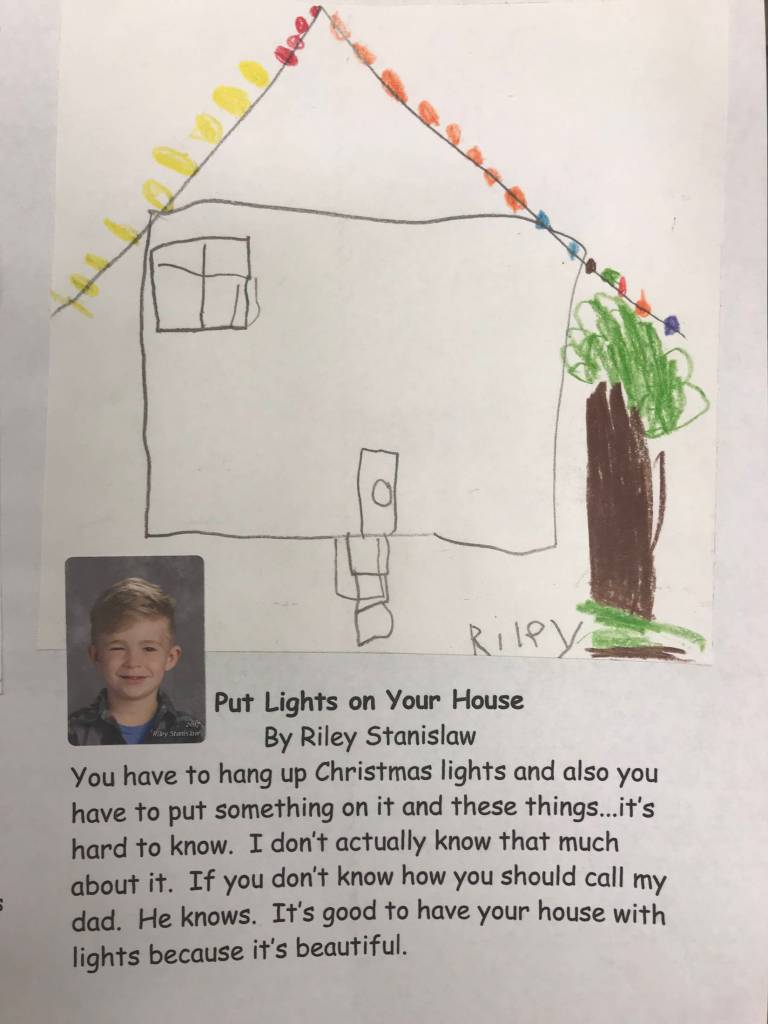 RilEy
Put Lights on Your House
By Riley Stanislaw
Riley Stanislaw
You have to hang up Christmas lights and also you
have to put something on it and these things...it's
hard to know.  I don't actually know that much
about it.  If you don't know how you should call my
dad.  He knows.  It's good to have your house with
lights because it's beautiful.